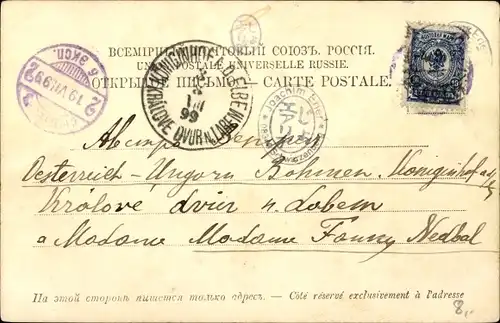 ВСЕМІРНЫЙ ПОЧТОВЫЙ СОЮЗЪ. РОССІЯ.
UNION POSTALE UNIVERSELLE RUSSIE.
ОТКРЫТОЕ ПИСЬМО — CARTE POSTALE.
6 ЭКСП.
19 VII 99
2 2
KÖNIGINHOF a. d. ELBE
KRÁLOVÉ DVŮR N. LABEM
VIII
99
Joachim
Австрія Венгрія
Oesterreich - Ungarn Böhmen. Königinhof a/
Králové dvůr n. Labem
a Madame Madame Fanny Nedbal
На этой сторонѣ пишется только адресъ. — Côté réservé exclusivement à l'adresse
8,-